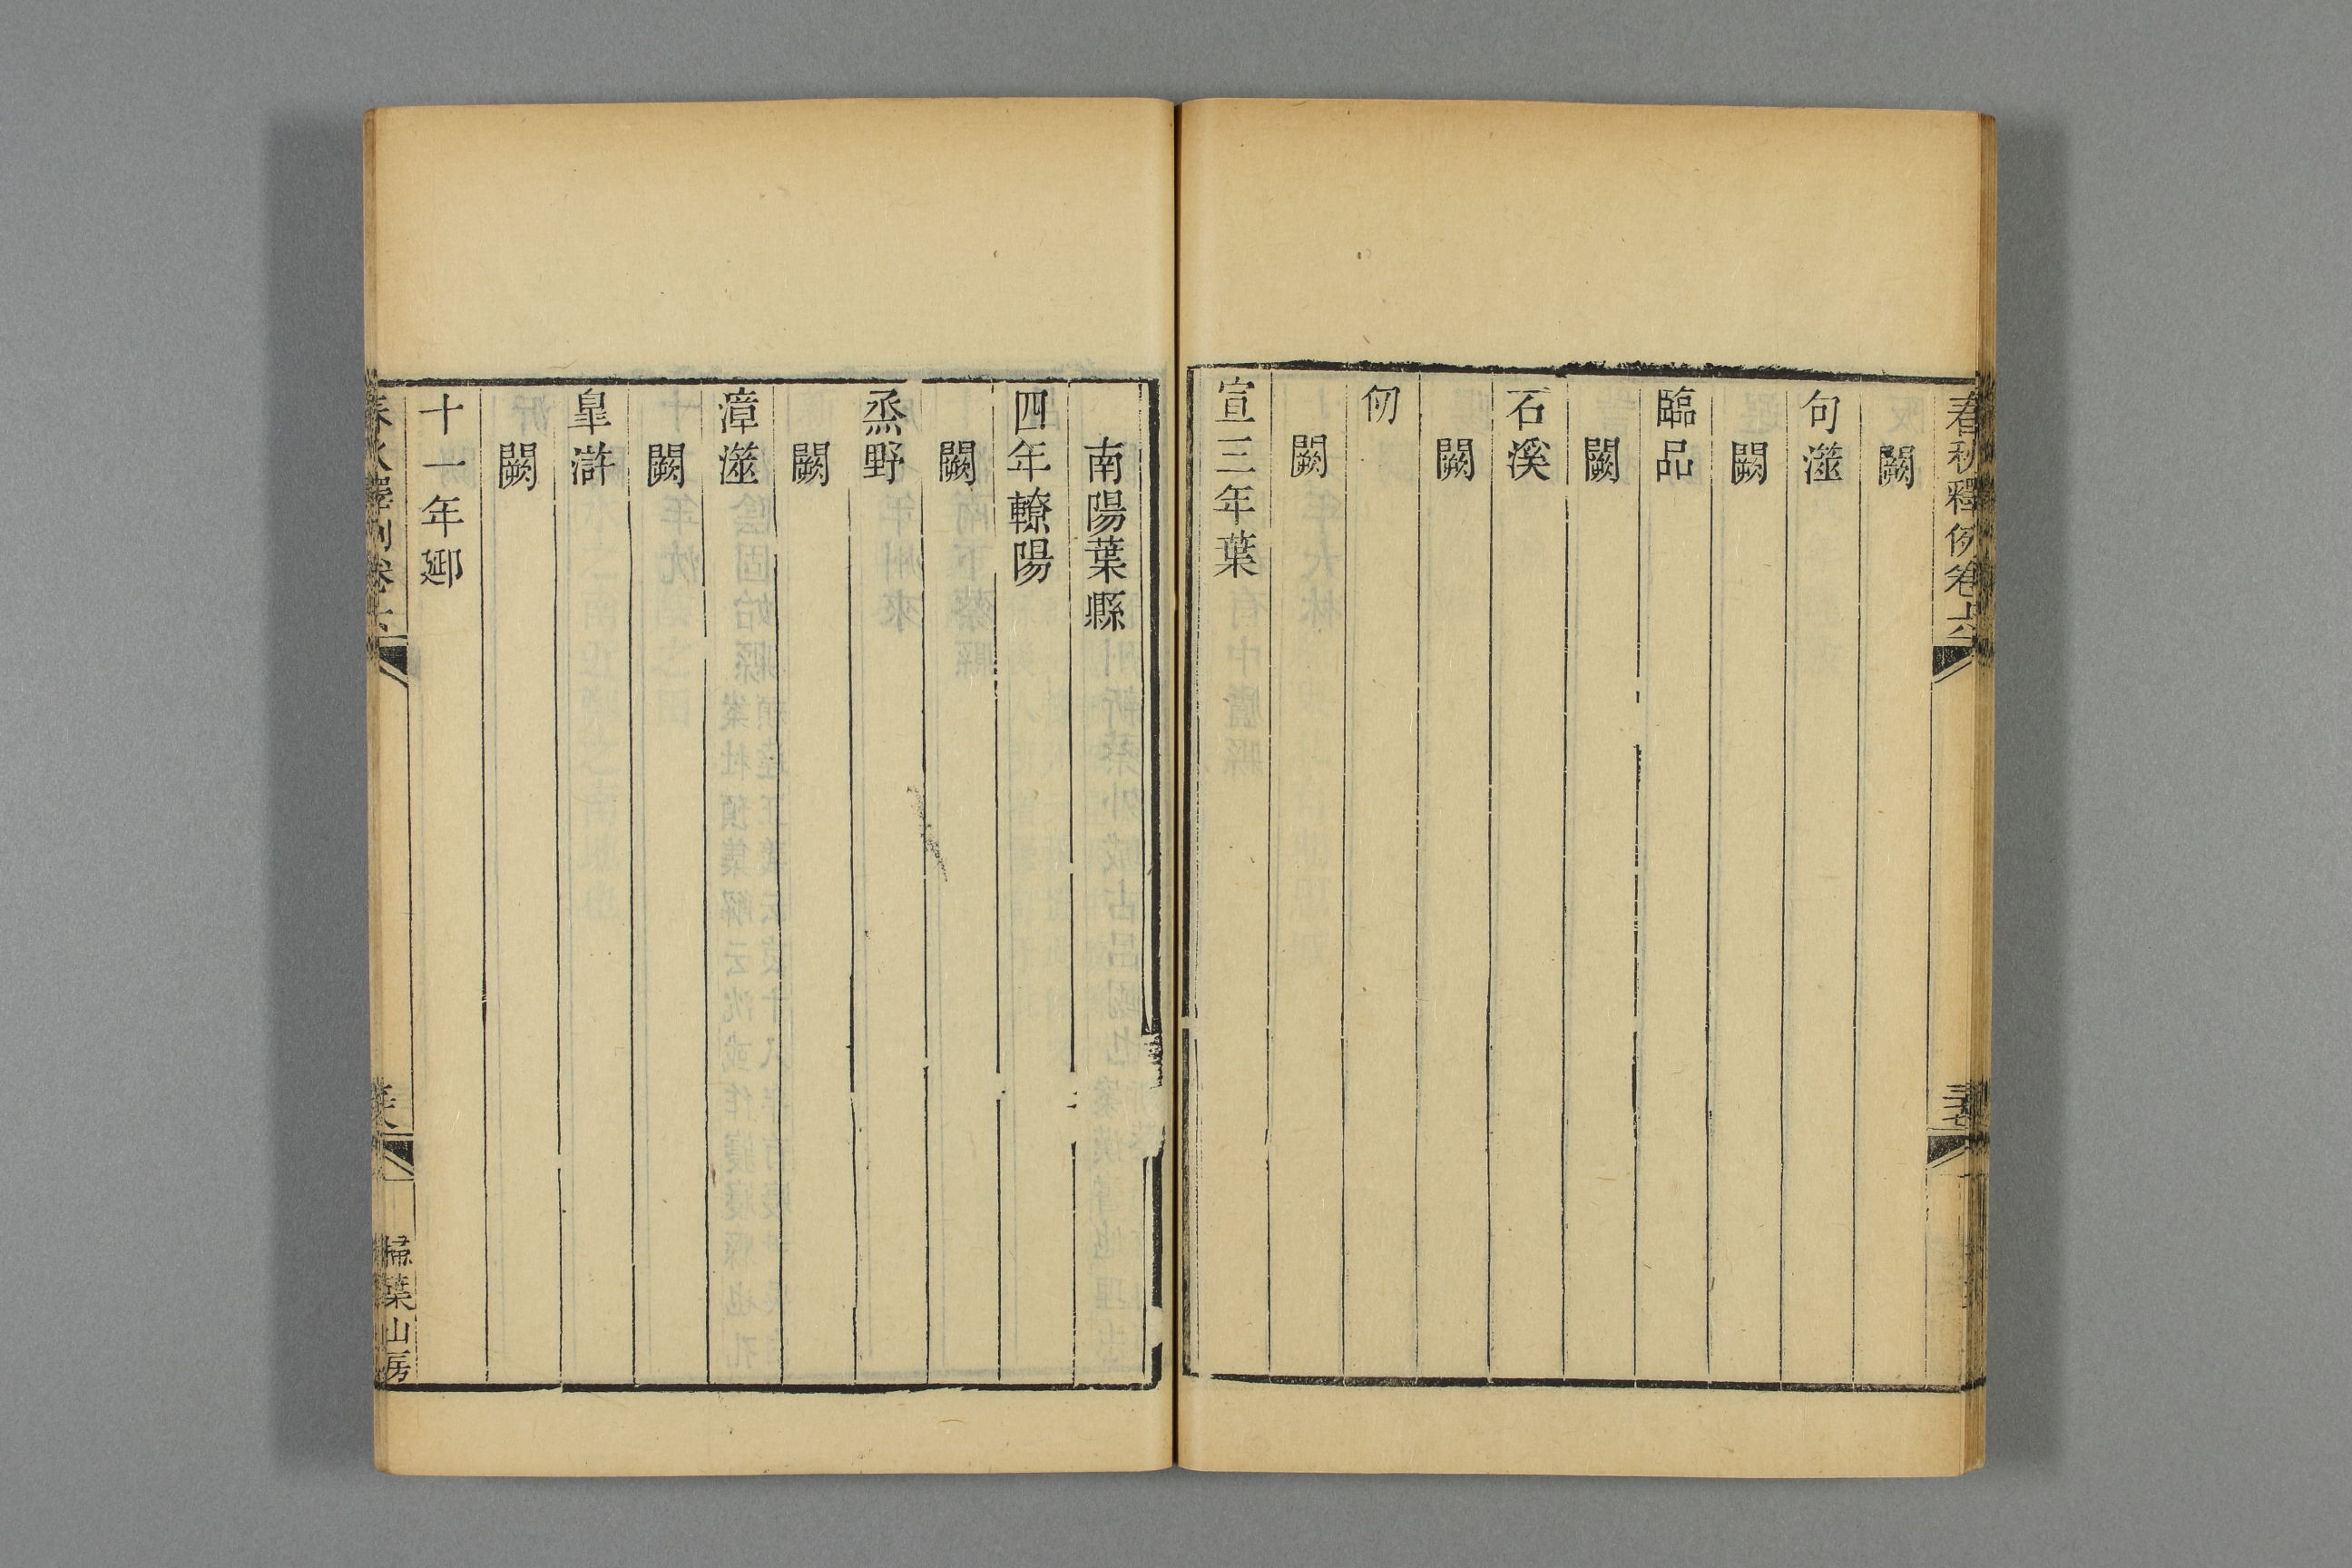 春秋釋例卷六
闕
句澨
闕
臨品
闕
石溪
闕
仞
闕
宣三年葉
南陽葉縣
四年轑陽
闕
烝野
闕
漳澨
闕
皐滸
闕
十一年郔
掃葉山房